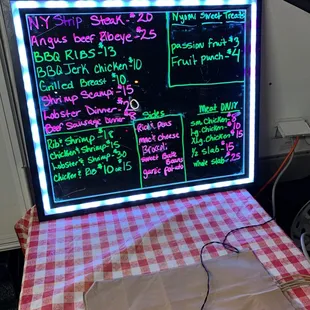 N.Y Strip Steak - $20
Angus beef Ribeye - $25
BBQ RIBS - $13
BBQ Jerk chicken - $10
Grilled Breast $10
Shrimp Scampi - $15
Lobster Dinner - 20
Beef Sausage Dinner
Rib & Shrimp - 18
Chicken & Shrimp $15
Lobster & Shrimp - 30
Chicken & Rib $10 or 15
Sides
Rice & peas
mac & cheese
Broccoli
sweet Bake
Beans
garlic potato
Nyami Sweet Treats
passion fruit $3
Fruit punch - $4
Meat ONLY
Sm. Chicken - $8
Lg. Chicken - $10
XLg. Chicken $15
1/2 slab - $15
whole slab - $25